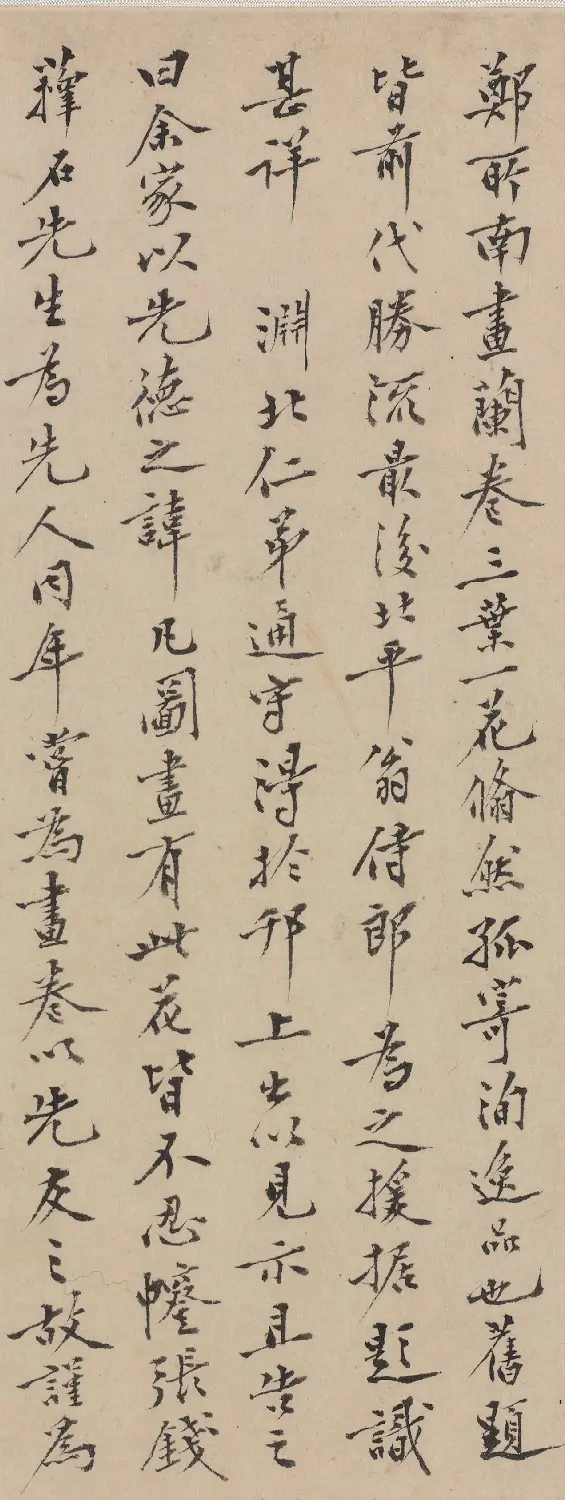 鄭所南畫蘭卷三葉一花翛然孤寄洵逸品也舊題
皆前代勝流最後北平翁侍郎為之援据題識
甚詳 淵北仁弟通守得於邗上出以見示且告之
曰余家以先德之諱凡圖畫有此花皆不忍㡧張錢
蘀石先生為先人同年嘗為畫卷以先友之故謹為